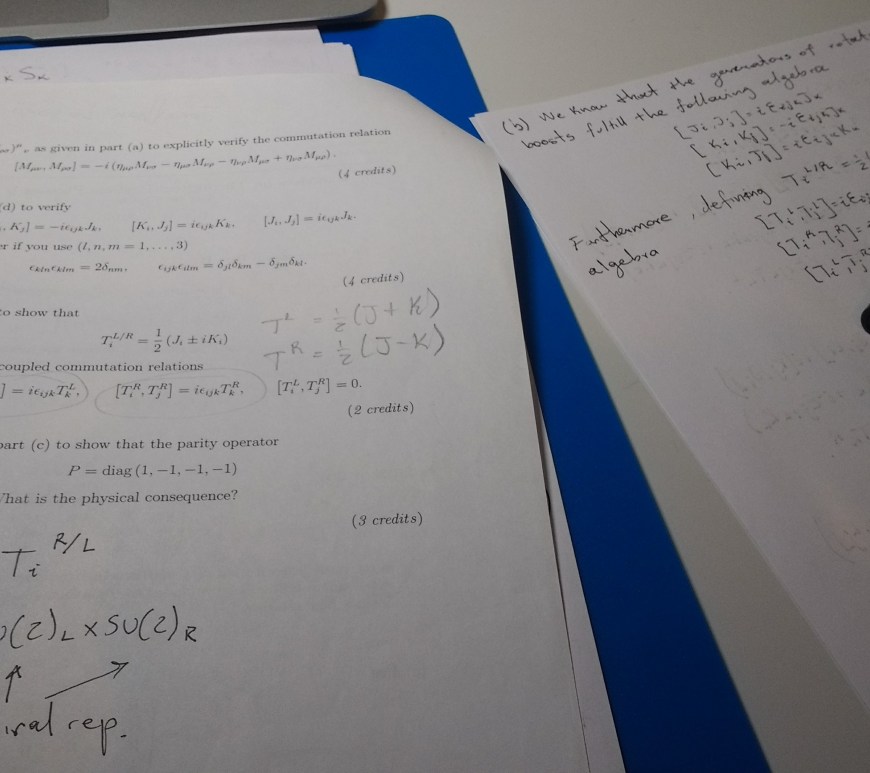 κ Sκ
as given in part (a) to explicitly verify the commutation relation
[M_{μν}, M_{ρσ}] = −i (η_{μρ}M_{νσ} − η_{μσ}M_{νρ} − η_{νρ}M_{μσ} + η_{νσ}M_{μρ}) .
(4 credits)
(d) to verify
, K_j] = −iε_{ijk}J_k, [K_i, J_j] = iε_{ijk}K_k, [J_i, J_j] = iε_{ijk}J_k.
er if you use (l, n, m = 1, . . . , 3)
ε_{kln}ε_{klm} = 2δ_{nm}, ε_{ijk}ε_{ilm} = δ_{jl}δ_{km} − δ_{jm}δ_{kl}.
(4 credits)
to show that
T_i^{L/R} = 1/2 (J_i ± iK_i)
T^L = 1/2 (J + K)
T^R = 1/2 (J − K)
coupled commutation relations
] = iε_{ijk}T_k^L, [T_i^R, T_j^R] = iε_{ijk}T_k^R, [T_i^L, T_j^R] = 0.
(2 credits)
part (c) to show that the parity operator
P = diag (1, −1, −1, −1)
What is the physical consequence?
(3 credits)
T_i^{R/L}
U(2)_L × SU(2)_R
iral rep.
(b) We know that the generators of
boosts fulfill the following algebra
[J_i, J_j] = iε_{ijk}J_k
[K_i, K_j] = −iε_{ijk}J_k
[K_i, J_j] = iε_{ijk}K_k
Furthermore, defining T_i^{L/R} = 1/2
algebra
[T_i^L, T_j^L] = iε
[T_i^R, T_j^R] =
[T_i^L, T_j^R